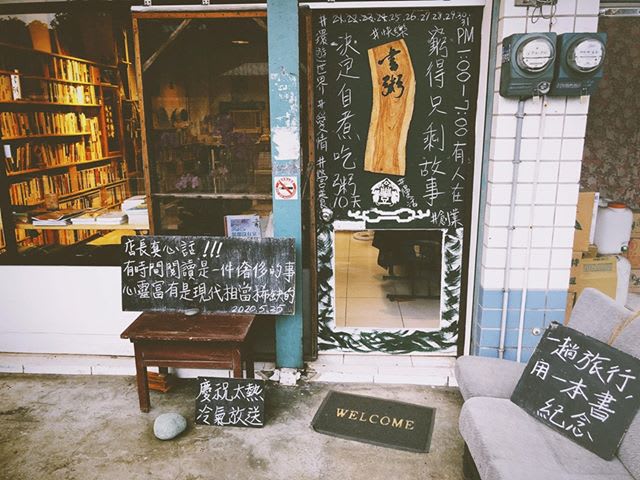 PM 1:00-7:00 有人在
#快樂
窮得只剩故事
書粥
決定自煮吃粥10天
#環遊世界 #愛情 #營養
店長真心話!!!
有時間閱讀是一件奢侈的事
心靈富有是現代相當稀缺的
2020.5.25
慶祝太熱
冷氣放送
WELCOME
一趟旅行,
用一本書
紀念